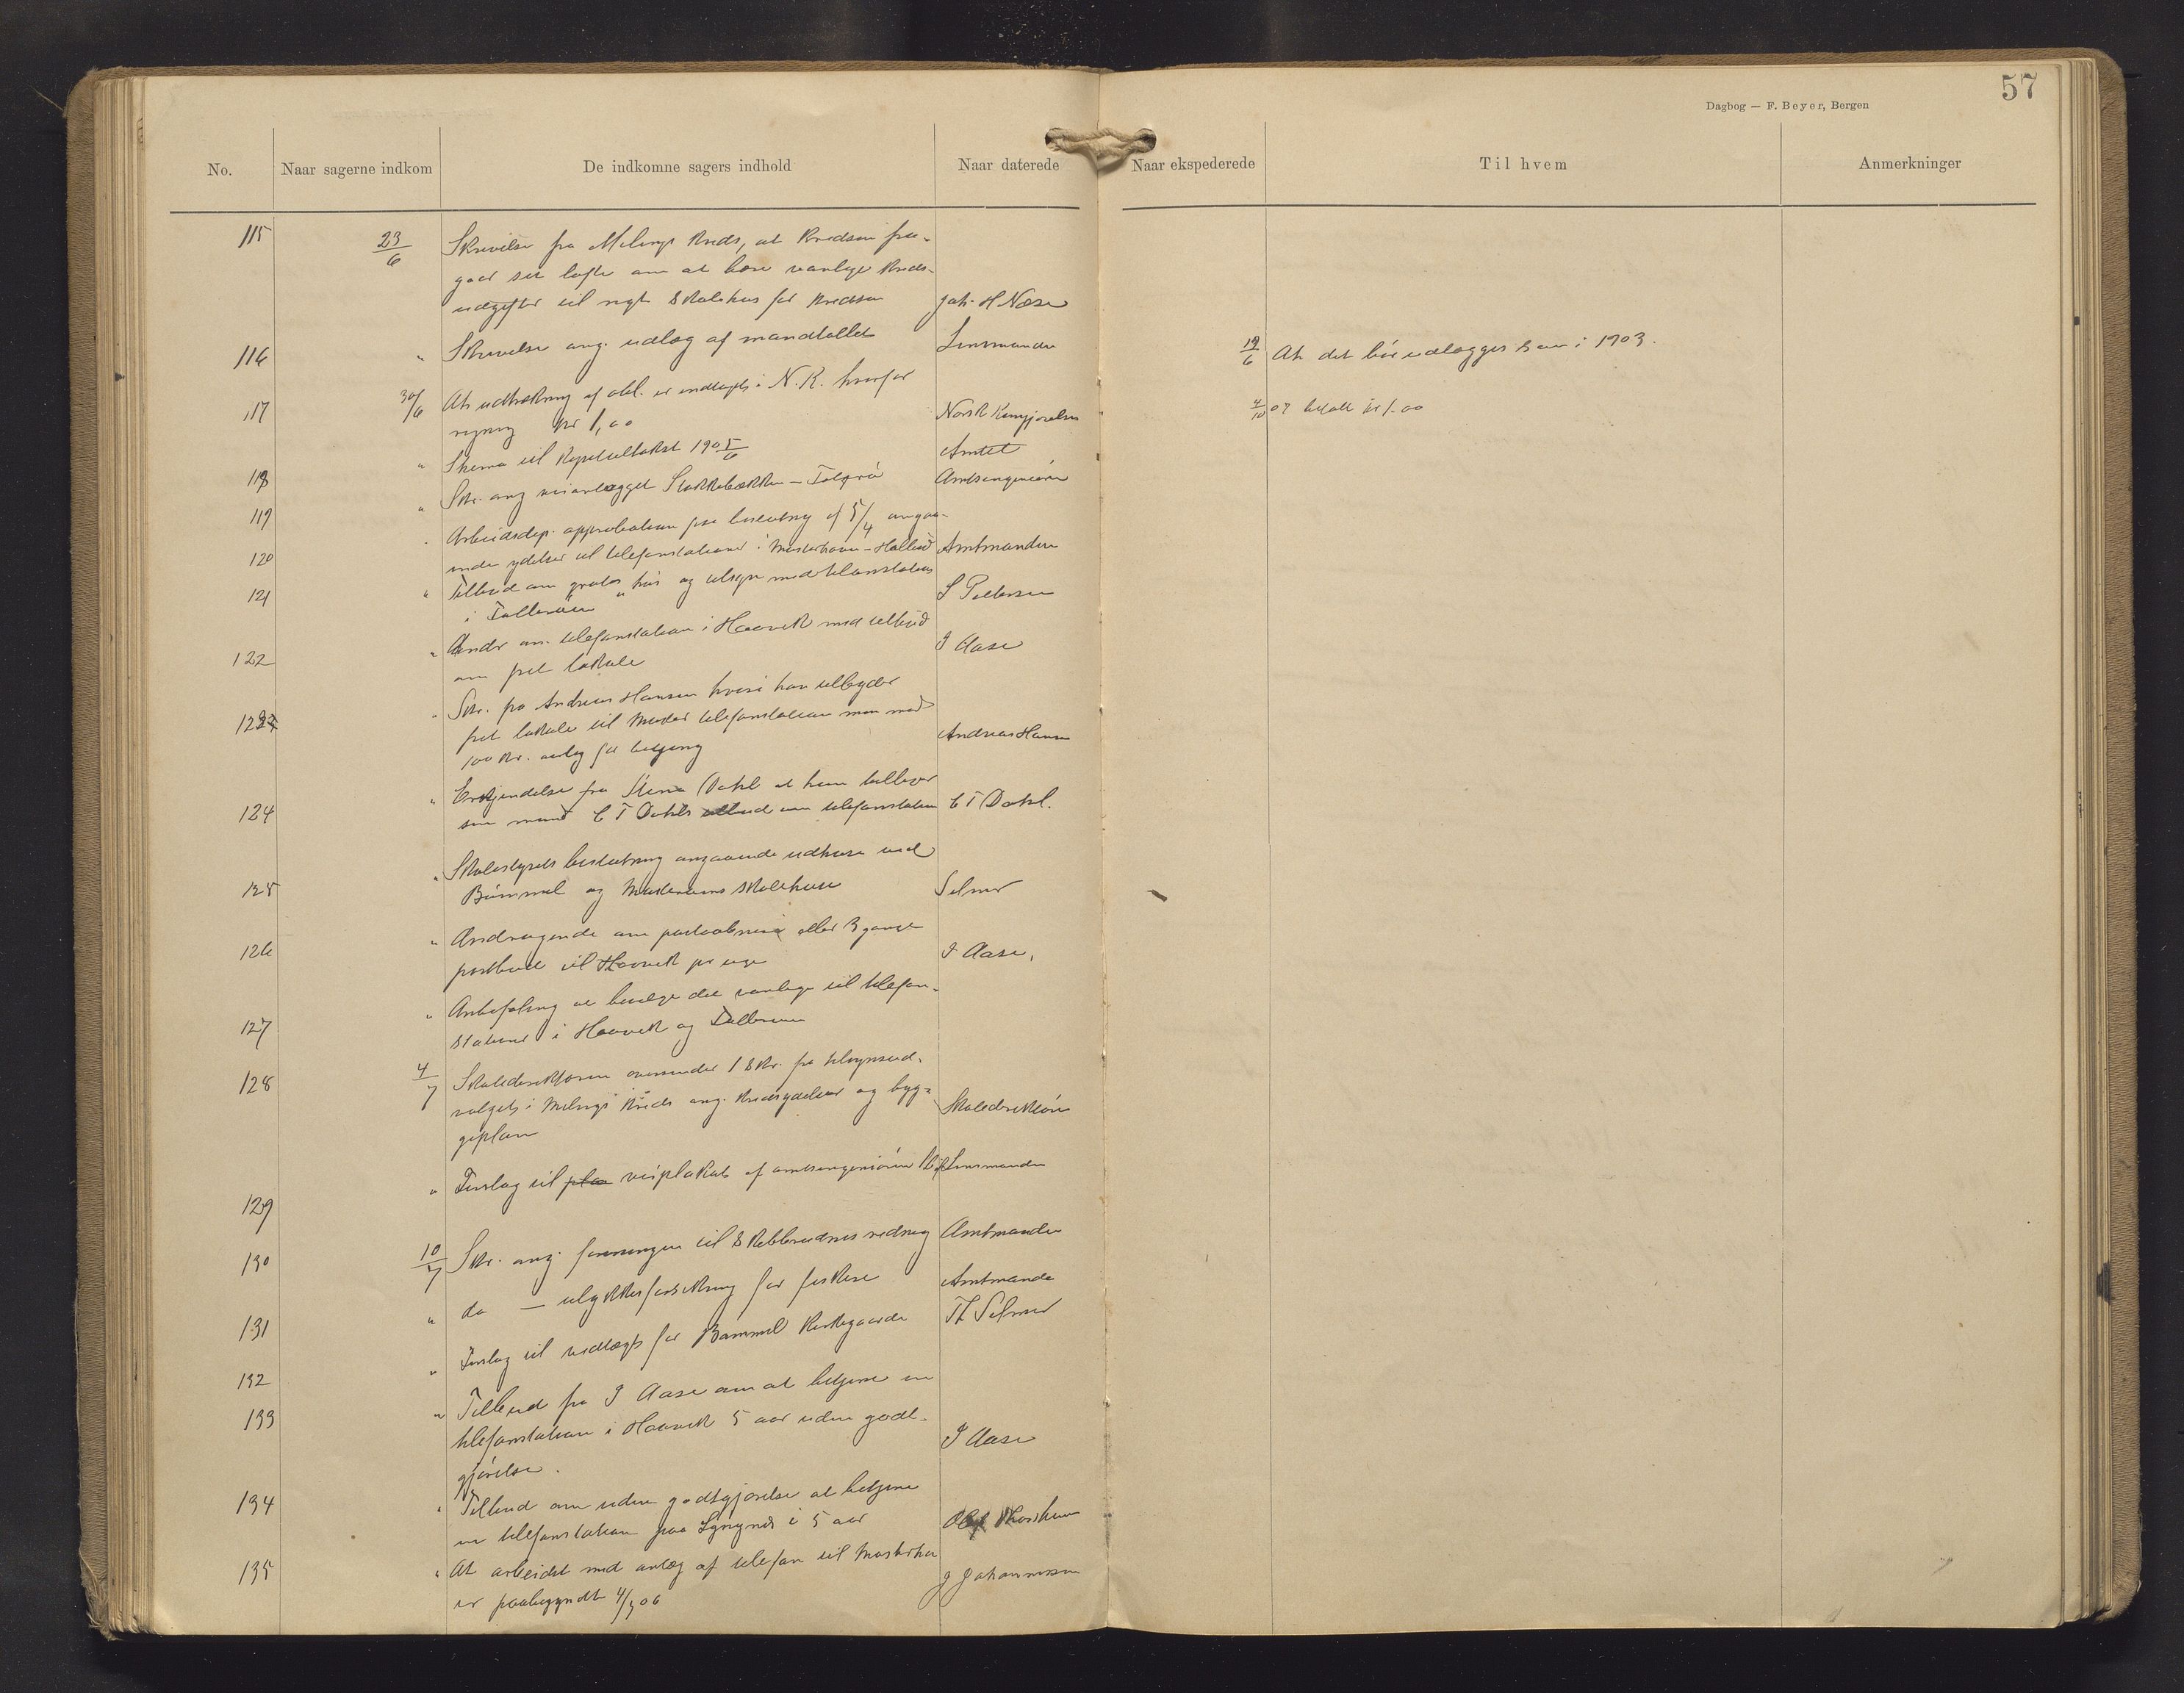 57
Dagbog — F. Beyer, Bergen
No. Naar sagerne indkom De indkomne sagers indhold Naar daterede Naar ekspederede Til hvem Anmerkninger
115 23/6 Skrivelse fra Melings kreds, at kredsen fra-
gaar sit løfte om at bære vanlige kreds-
udgifter til nyt skolehus for kredsen Joh. H Næse
116 " Skrivelse ang. udlæg af mandtallet Lensmanden 19/6 At det bør udlægges som i 1903.
117 30/6 At udtrækning af obl. er indtagt i N. K. hvorfor
regning Kr 1,00 Norsk Kungjørelses 4/10 07 betalt kr 1.00
118 " Skema til Kapitaltakst 1905/6 Amtet
119 " Skr. ang veianlægget Stokkebækken – Amtsingeniøren
120 " Arbeidsdep. approbation paa beslutning af 5/4 angaa-
ende ydelser til telefonstationer i Mosterhavn – Amtmanden
121 " Tilbud om gratis hus og tilsyn med telefonstation
i S Pettersen
122 " Andr om telefonstation i Haavik med tilbud
om frit lokale I Aase
123 " Skr. fra Andreas Hansen hvori han tilbyder
frit lokale til Moster telefonstation men med
100 kr. aarlig for betjening Andreas Hansen
124 " Erkjendelse fra Stina Dahl at hun
sin mand C T Dahls tilbud om telefonstation C T Dahl.
125 " Skolestyrets beslutning angaaende udhuse ved
Bømmel og skolehuse Selmer
126 " Andragende om postaabneri eller 3 gange
postbud til Haavik pr uge I Aase.
127 " Anbefaling at bevilge det vanlige til telefon-
stationer i Haavik og
128 4/7 Skoledirektøren oversender 1 skr. fra tilsynsud-
valget i Melings kreds ang. kredsydelser og byg-
geplan Skoledirektøren
129 " Forslag til veiplakat af amtsingeniøren Lensmanden
130 10/7 Skr. ang. foreningen til Skibbrudnes redning Amtmanden
131 " do — ulykkesforsikring for fiskere Amtmanden
132 " Forslag til vedtægt for Bømmel Kirkegaarde Th Selmer
133 " Tilbud fra I Aase om at betjene en
telefonstation i Haavik 5 aar uden godt-
gjørelse. I Aase
134 " Tilbud om uden godtgjørelse at betjene
en telefonstation paa i 5 aar
135 " At arbeidet med anlæg af telefon til
er paabegyndt 4/7 06 J Johannessen